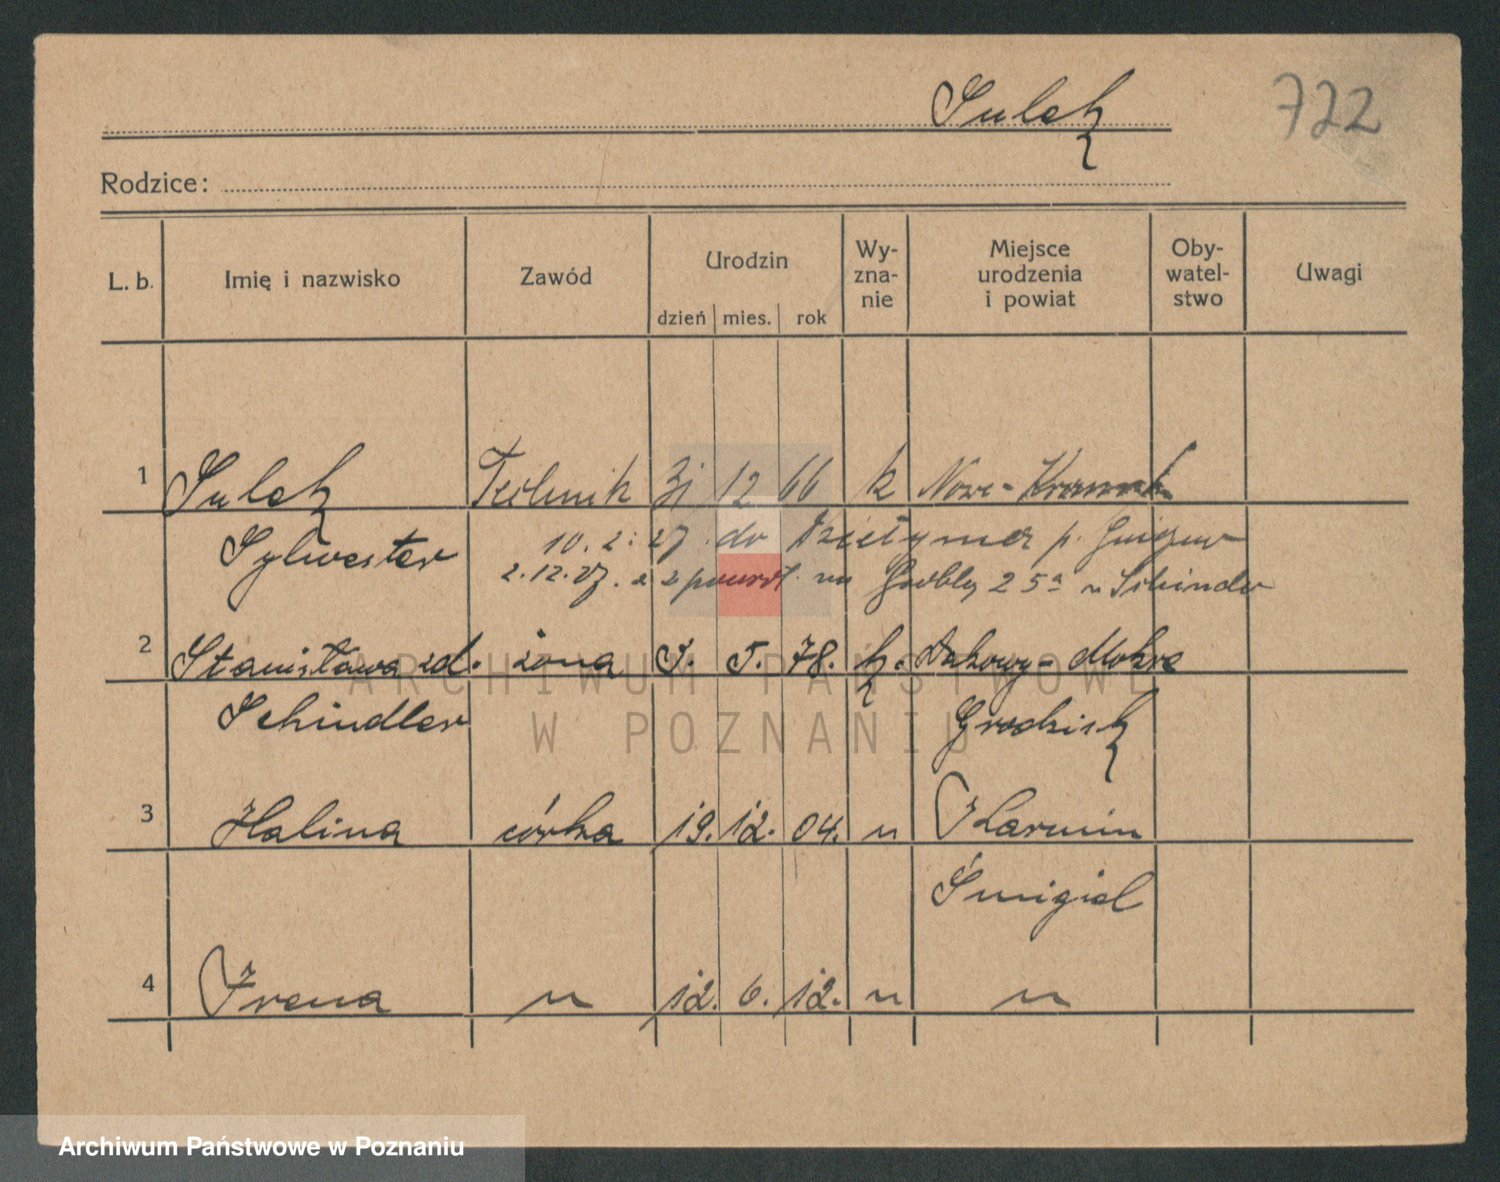 Sulek
722
Rodzice:
L. b. Imię i nazwisko Zawód Urodzin Wy-zna-nie Miejsce urodzenia i powiat Oby-watel-stwo Uwagi
dzień mies. rok
1 Sulek Technik 31 12 66 k Nowe-
Sylwester 10. 2. 27. do p.
2.12.27. z powrt. na Grobla 25a u Schindler
2 Stanisława zd. żona 5. 5. 78. k. Dakowy-Mokre
Schindler Grodzisk
3 Halina córka 19. 12. 04. " Karmin
Śmigiel
4 Irena " 12. 6. 12. " "
ARCHIWUM PAŃSTWOWE
W POZNANIU
Archiwum Państwowe w Poznaniu